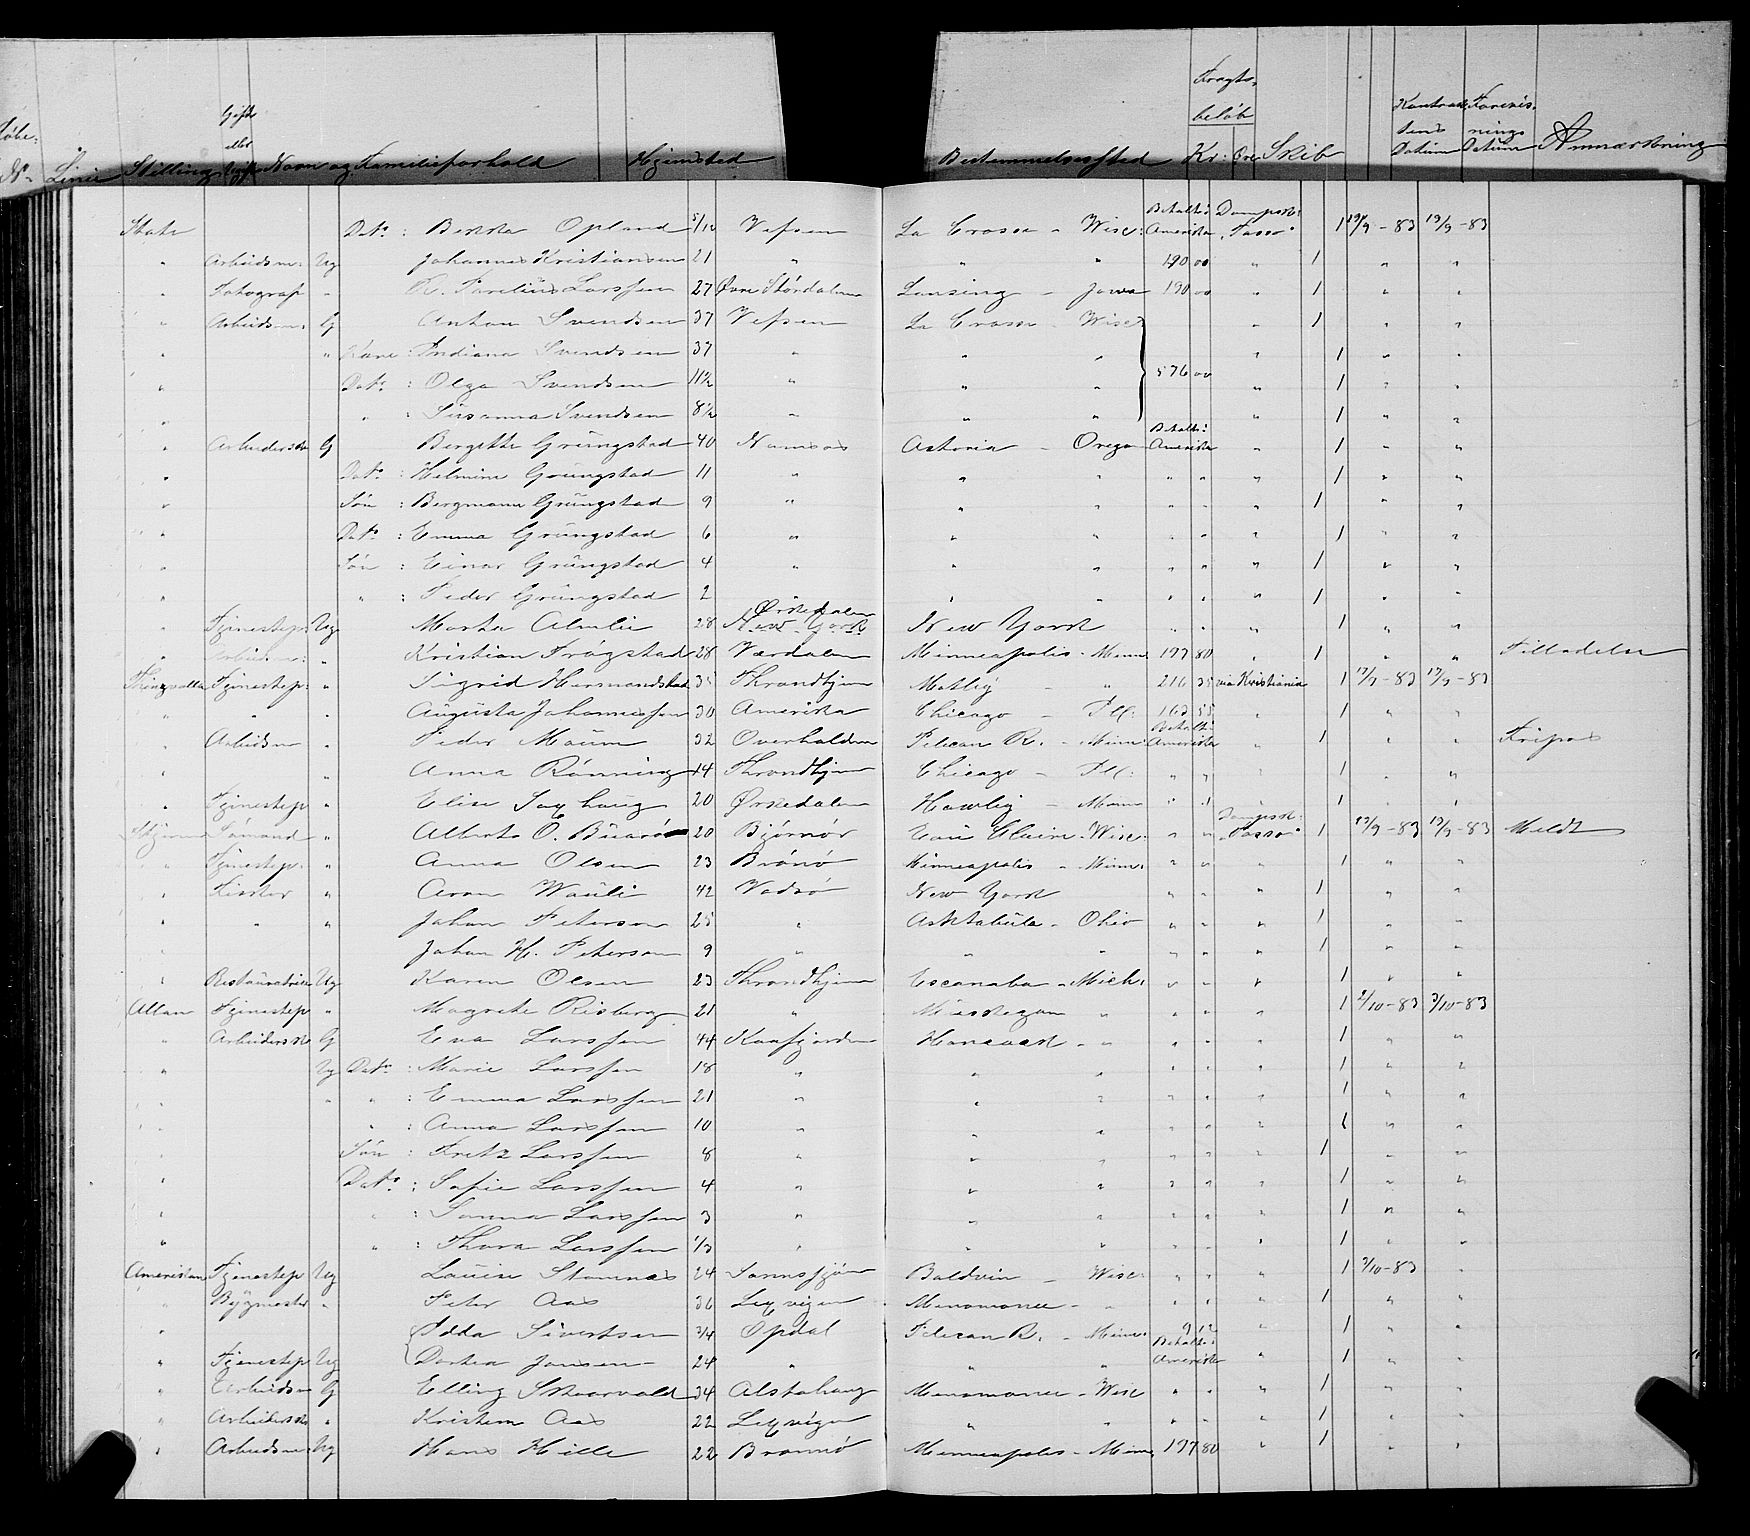 Løbe- № Linie Stilling Gift eller Ugift Navn og Familieforhold Hjemsted Bestemmelsessted Fragtbeløb Kr: Øre Skib Kontraktens Datum Forevisnings Datum Anmærkning
State Datr: Berka Opland 5/12 Vefsen La Crosse - Wisc: Betalt i Amerika Dampsk: "Tasso" 1 19/9-83 19/9-83
" Arbeidsm: Ug Johannes Kristiansen 21 " " " 190 00 " 1 " "
" Fotograf " Larssen 27 Øvre Størdalen Lansing - Jowa 190 00 " 1 " "
" Arbeidsm: G Anton Svendsen 37 Vefsen La Crosse - Wisc " 1 " "
" " Kone: Indiana Svendsen 37 " " " " 1 " "
" Datr: Olga Svendsen 11½ " " " 576 00 " 1 " "
" " : Susanna Svendsen 8½ " " " " 1 " "
" Arbeidersk G Bergitte Grüngstad 40 Namsos Astoria - Oregon Betalt i Amerika " 1 " "
" Datr: Helmine Grüngstad 11 " " " " " " 1 " "
" Søn : Bergmann Grüngstad 9 " " " " " " 1 " "
" Datr : Emma Grüngstad 6 " " " " " " 1 " "
" Søn : Einar Grüngstad 4 " " " " " " 1 " "
" " : Peder Grüngstad 2 " " " " " " 1 " "
" Tjenestep: Ug Marta Almlie 28 Ørkedalen New York New York " " " 1 " "
" Arbeidsm: " Kristian Trøgstad 28 Værdalen Minneapolis - Minn 197 80 " 1 " " Filladelse
Thingvalla Tjenestep: " Sigrid Hermandstad 35 Throndhjem " 216 35 via Kristiania 1 17/9-83 17/9-83
" " " Augusta Johannessen 30 Amerika Chicago - Ill: 163 55 " 1 " "
" Arbeidsm " Peder Moum 32 Overhalden Pelican R. - Minn: Betalt i Amerika " 1 " " Fripas
" " Anna Rønning 14 Throndhjem Chicago - Ill: " " " 1 " "
" Tjenestep " Elise Saxhaug 20 Ørkedalen Hawley - Minn " " " 1 " "
Stjerne Sømand " Albert O. 20 Bjørnør Eau Claire - Wisc " " Dampsk: "Tasso" 1 19/9-83 19/9-83 Meldt
" Tjenestep: " Anna Olsen 23 Brønø Minneapolis - Minn: " " " 1 " "
" Fisker " Aron Wauli 42 Vadsø New York " " " 1 " "
" " " Johan Peterson 25 " Ashtabula - Ohio " " " 1 " "
" Johan H. Peterson 9 " " " " " " 1 " "
" Restauratrice Ug Karen Olsen 23 Throndhjem Escanaba - Mich: " " " 1 " "
Allan Tjenestep " Magrete Risberg 21 " Muskegon " " " " 1 2/10-83 3/10-83
" Arbeidersk G Eva Larssen 44 Kaafjorden Hancock - " " " " 1 " "
" Ug Datr : Marie Larssen 18 " " " " " " 1 " "
" " " : Emma Larssen 21 " " " " " " 1 " "
" " : Anna Larssen 10 " " " " " " 1 " "
" Søn : Fretz Larssen 8 " " " " " " 1 " "
" Datr : Sofie Larssen 4 " " " " " " 1 " "
" " : Sanna Larssen 3 " " " " " " 1 " "
" " : Thora Larssen 1/3 " " " " " " 1 " "
Amerikan Tjenestep Ug Louise Stamnes 24 Baldvin - Wisc: " " " 1 3/10-83 "
" Bygmester " Peter Aas 36 Lexvigen Menomonee - " " " " 1 " "
" Idda Sivertsen 3/4 Opdal Pelican R. - Minn: 9 12 " 1 " "
" Tjenestep Ug Dortea Jonsen - 24 " " " Betalt i Amerika " 1 " "
" Arbeidsm G Elling Skaarvold 34 Alstahaug Menomonee - Wisc " " " 1 " "
" Arbeidersk " Kristem Aas 22 Lexvigen " " " " " 1 " "
" Arbeidsm Ug Hans Hille 22 Brønnø Minneapolis - Minn, 197 80 " 1 " "